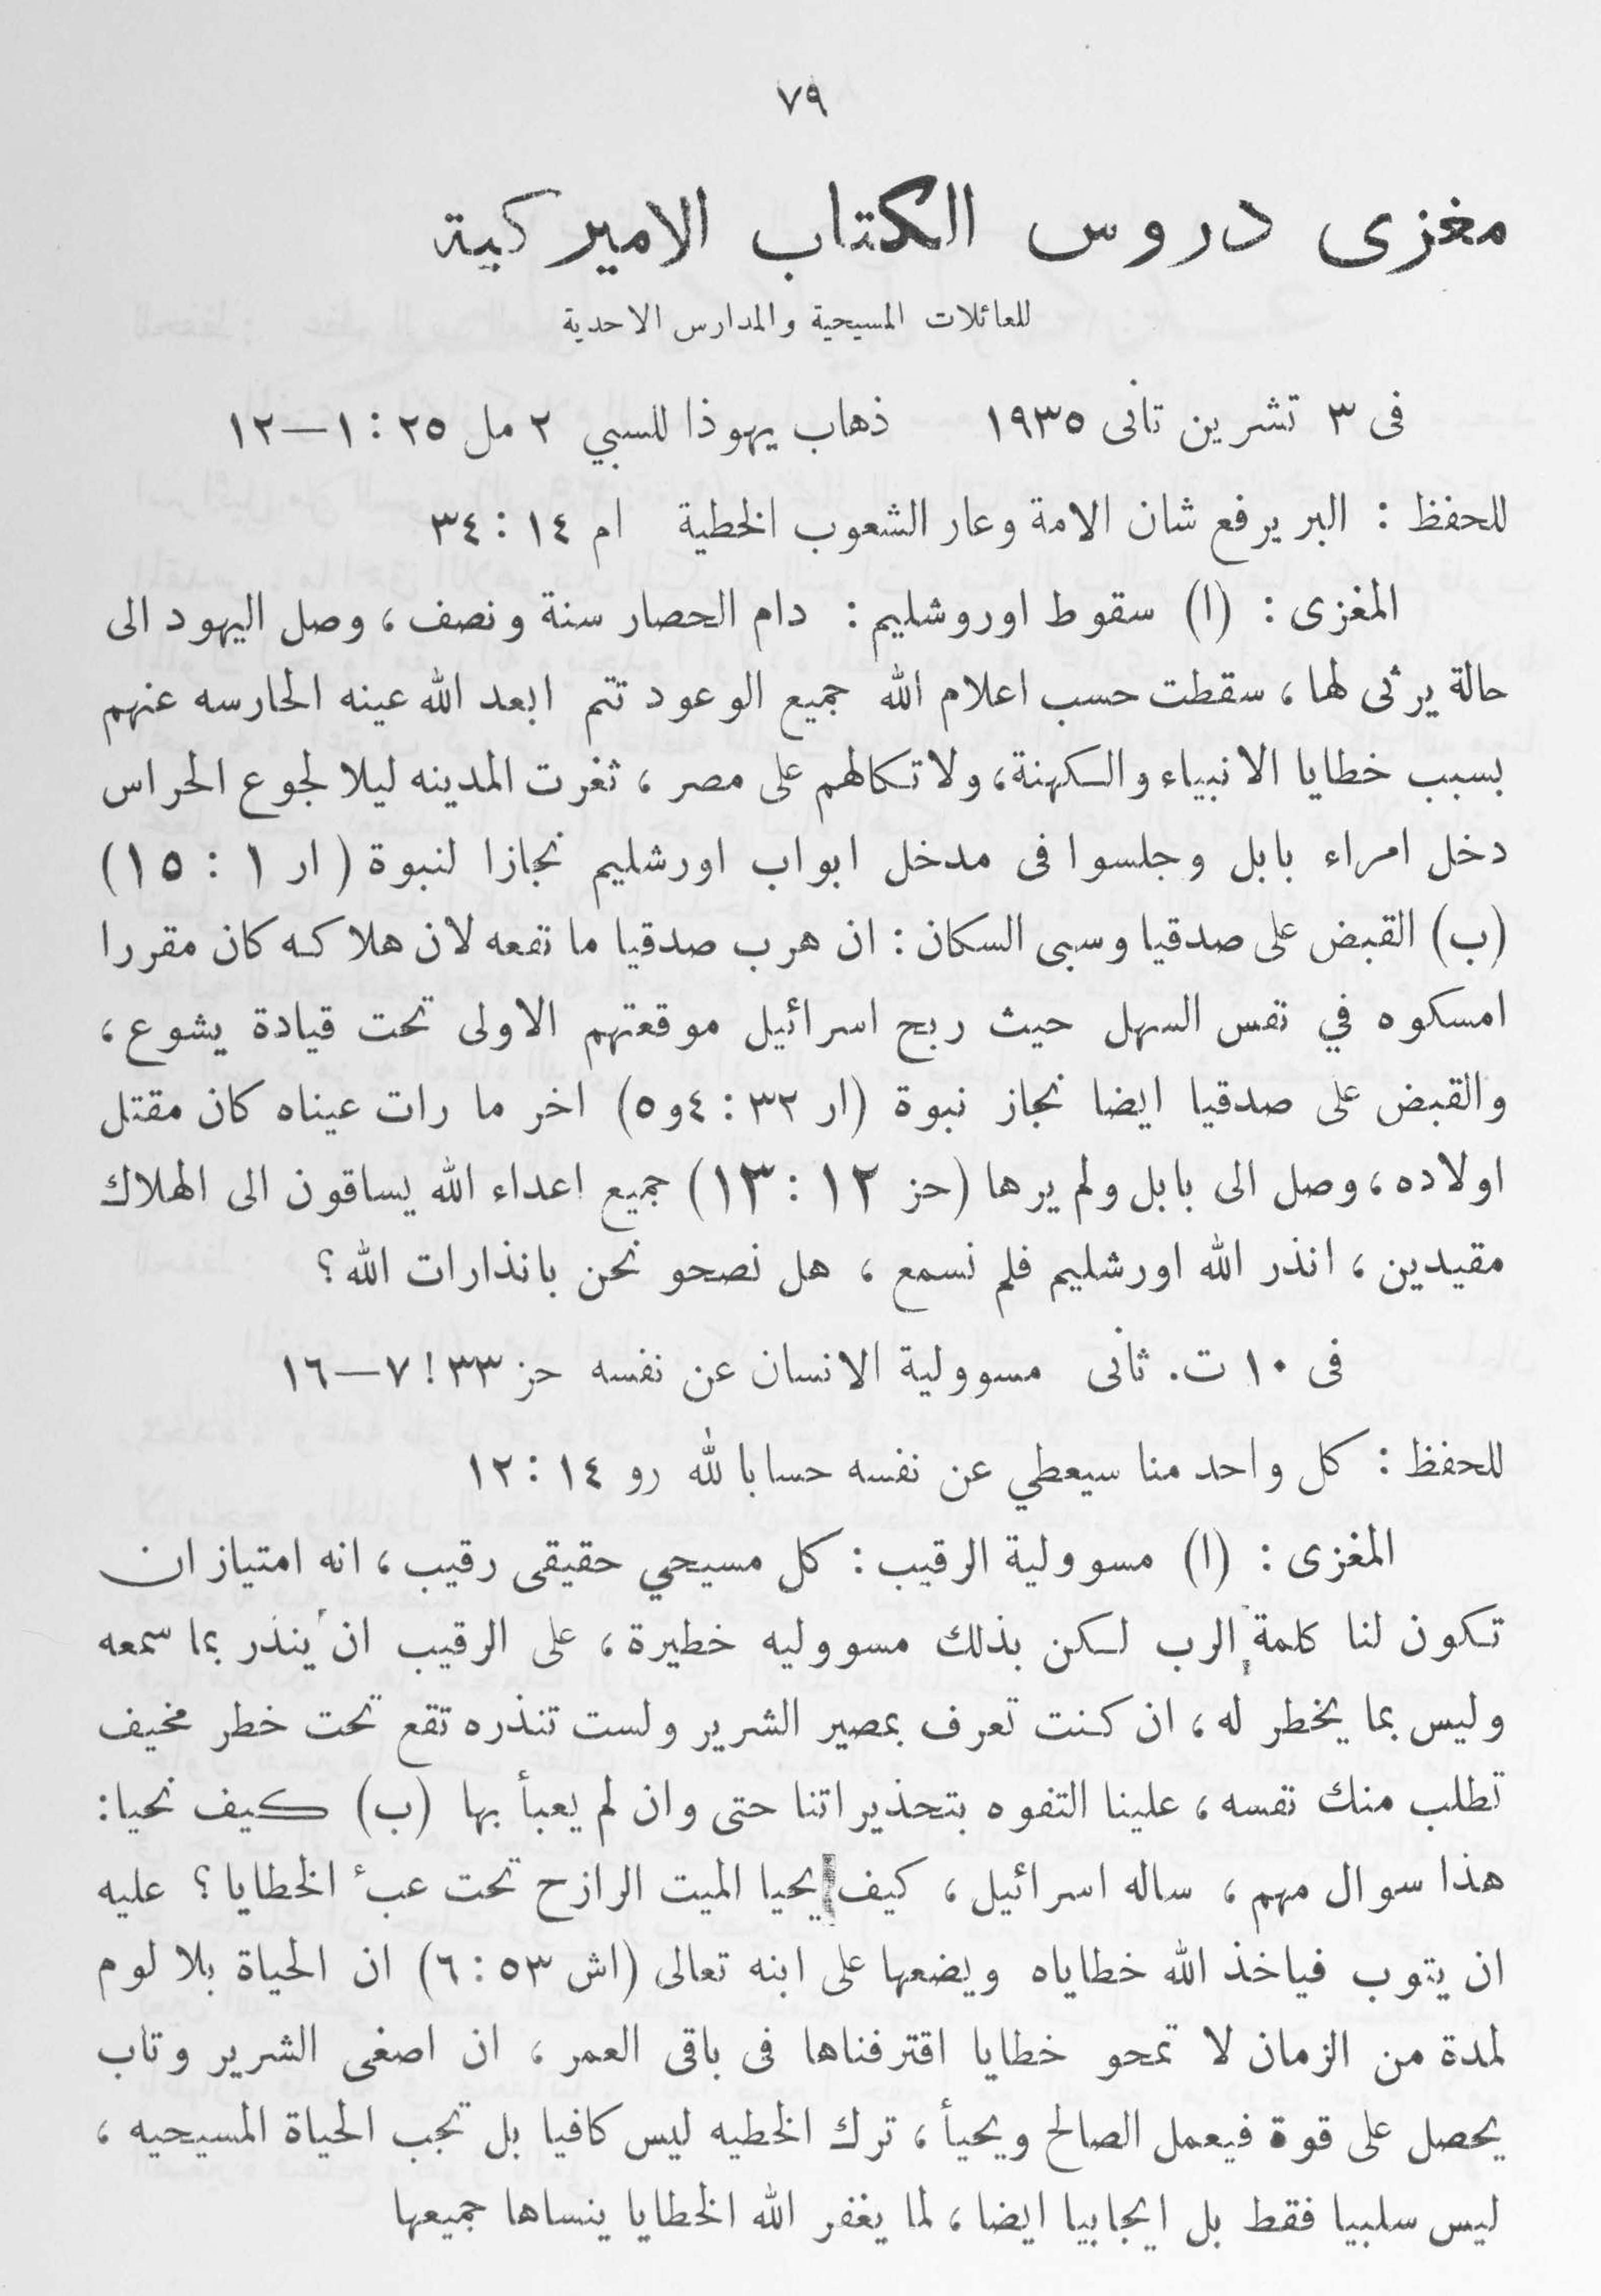 ٧٩
مغزى دروس الكتاب الاميركية
للعائلات المسيحية والمدارس الاحدية
فى ٣ تشرين تانى ١٩٣٥ ذهاب يهوذا للسبي ٢ مل ٢٥ : ١—١٢
للحفظ : البر يرفع شان الامة وعار الشعوب الخطية ام ١٤ : ٣٤
المغزى : (ا) سقوط اوروشليم : دام الحصار سنة ونصف ، وصل اليهود الى
حالة يرثى لها ، سقطت حسب اعلام الله جميع الوعود تتم ابعد الله عينه الحارسه عنهم
بسبب خطايا الانبياء والكهنة، ولاتكالهم على مصر ، ثغرت المدينه ليلا لجوع الحراس
دخل امراء بابل وجلسوا فى مدخل ابواب اورشليم نجازا لنبوة ( ار ١ : ١٥ )
(ب) القبض على صدقيا وسبى السكان : ان هرب صدقيا ما نفعه لان هلاكه كان مقررا
امسكوه في نفس السهل حيث ربح اسرائيل موقعتهم الاولى تحت قيادة يشوع ،
والقبض على صدقيا ايضا نجاز نبوة (ار ٣٢ : ٤و٥) اخر ما رات عيناه كان مقتل
اولاده ، وصل الى بابل ولم يرها (حز ١٢ : ١٣) جميع اعداء الله يساقون الى الهلاك
مقيدين ، انذر الله اورشليم فلم نسمع ، هل نصحو نحن بانذارات الله ؟
فى ١٠ ت. ثانى مسوولية الانسان عن نفسه حز ٣٣ ! ٧—١٦
للحفظ : كل واحد منا سيعطي عن نفسه حسابا لله رو ١٤ : ١٢
المغزى : (ا) مسوولية الرقيب : كل مسيحي حقيقى رقيب ، انه امتياز ان
تكون لنا كلمة الرب لكن بذلك مسووليه خطيرة ، على الرقيب ان ينذر بما سمعه
وليس بما يخطر له ، ان كنت تعرف بمصير الشرير ولست تنذره تقع تحت خطر مخيف
تطلب منك نفسه ، علينا التفوه بتحذيراتنا حتى وان لم يعبأ بها (ب) كيف نحيا :
هذا سوال مهم ، ساله اسرائيل ، كيف يحيا الميت الرازح تحت عبء الخطايا ؟ عليه
ان يتوب فياخذ الله خطاياه ويضعها على ابنه تعالى (اش ٥٣ : ٦) ان الحياة بلا لوم
لمدة من الزمان لا تمحو خطايا اقترفناها فى باقى العمر ، ان اصغى الشرير وتاب
يحصل على قوة فيعمل الصالح ويحيأ ، ترك الخطيه ليس كافيا بل تجب الحياة المسيحيه ،
ليس سلبيا فقط بل ايجابيا ايضا ، لما يغفر الله الخطايا ينساها جميعها